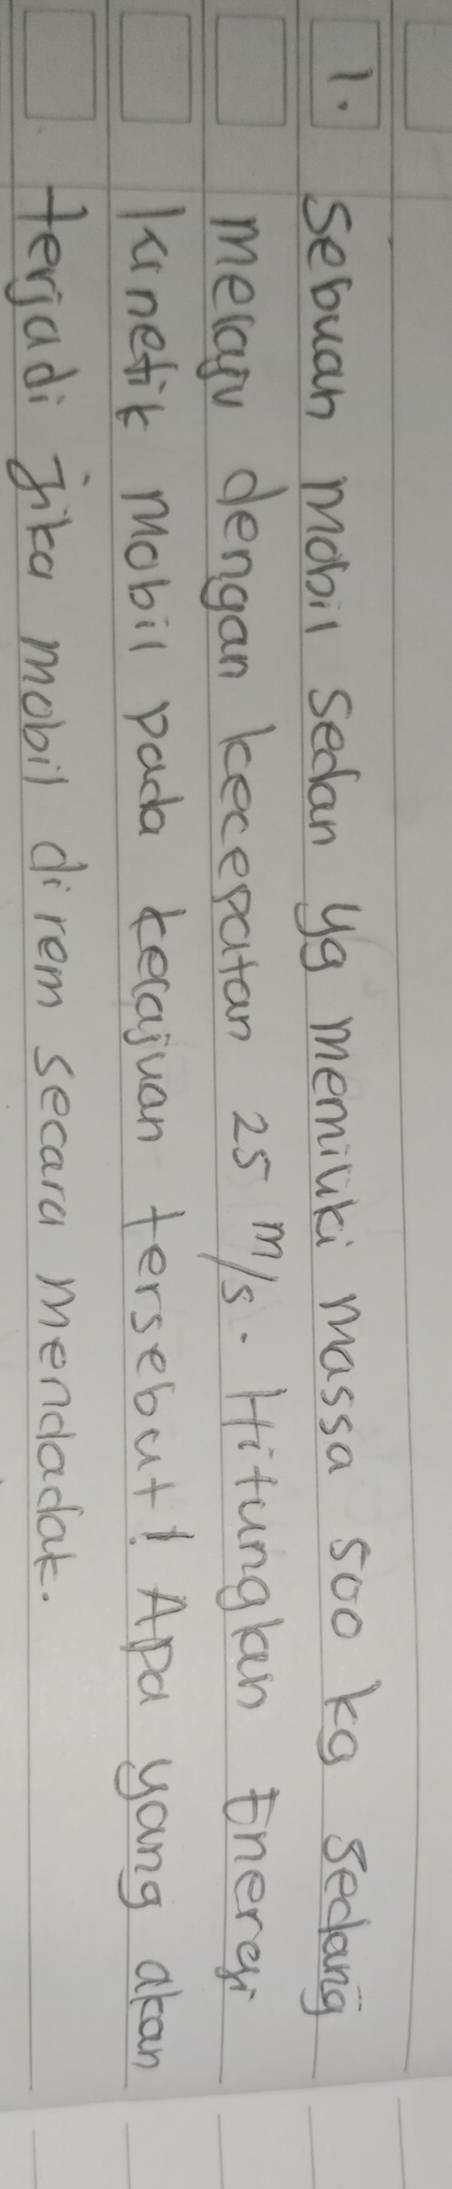 1. Sebuah mobil sedan yg memiliki massa 500 kg sedang
melaju dengan kecepatan 25 m/s. Hitunglah Energi
kinetik mobil pada kelajuan tersebut! Apa yang akan
terjadi jika mobil di rem secara mendadak.